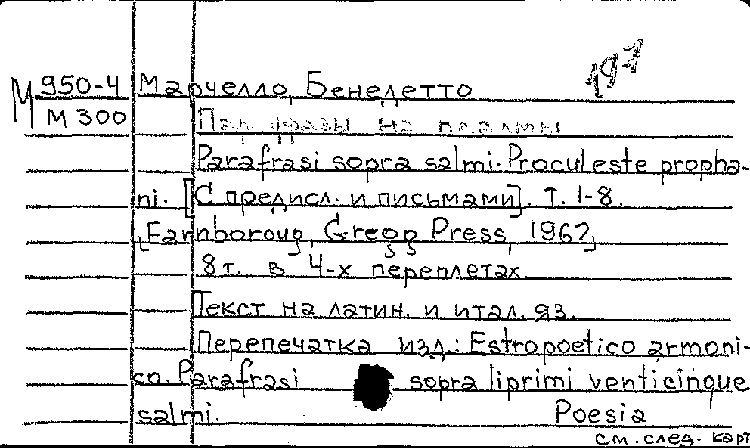 М 950-4 Марчелло, Бенедетто 19-1
М 300 Парафразы на псалмы
Parafrasi sopra salmi. Proculeste propha-
ni. [С предисл. и письмами]. Т. 1-8.
[Farnboroug, Gregg Press, 1967]
8 т. в 4-х переплетах.
Текст на латин. и итал. яз.
Перепечатка изд.: Estropoetico armoni-
co. Parafrasi sopra liprimi venticinque
salmi. Poesia
см. след. карт